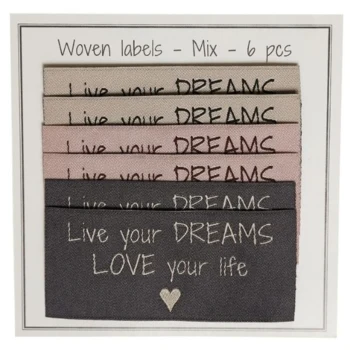 Woven labels - Mix - 6 pcs
Live your DREAMS
Live your DREAMS
Live your DREAMS
Live your DREAMS
Live your DREAMS
Live your DREAMS
LOVE your life